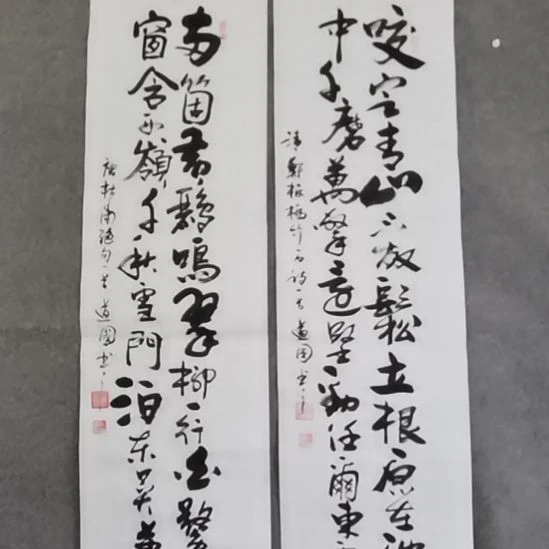 咬定青山不放鬆立根原在
中千磨萬擊還堅勁任爾東
清鄭板橋竹石詩一首 道國書
兩箇黃鸝鳴翠柳一行白鷺
窗含西嶺千秋雪門泊東吳萬
唐杜甫絕句一首 道國書